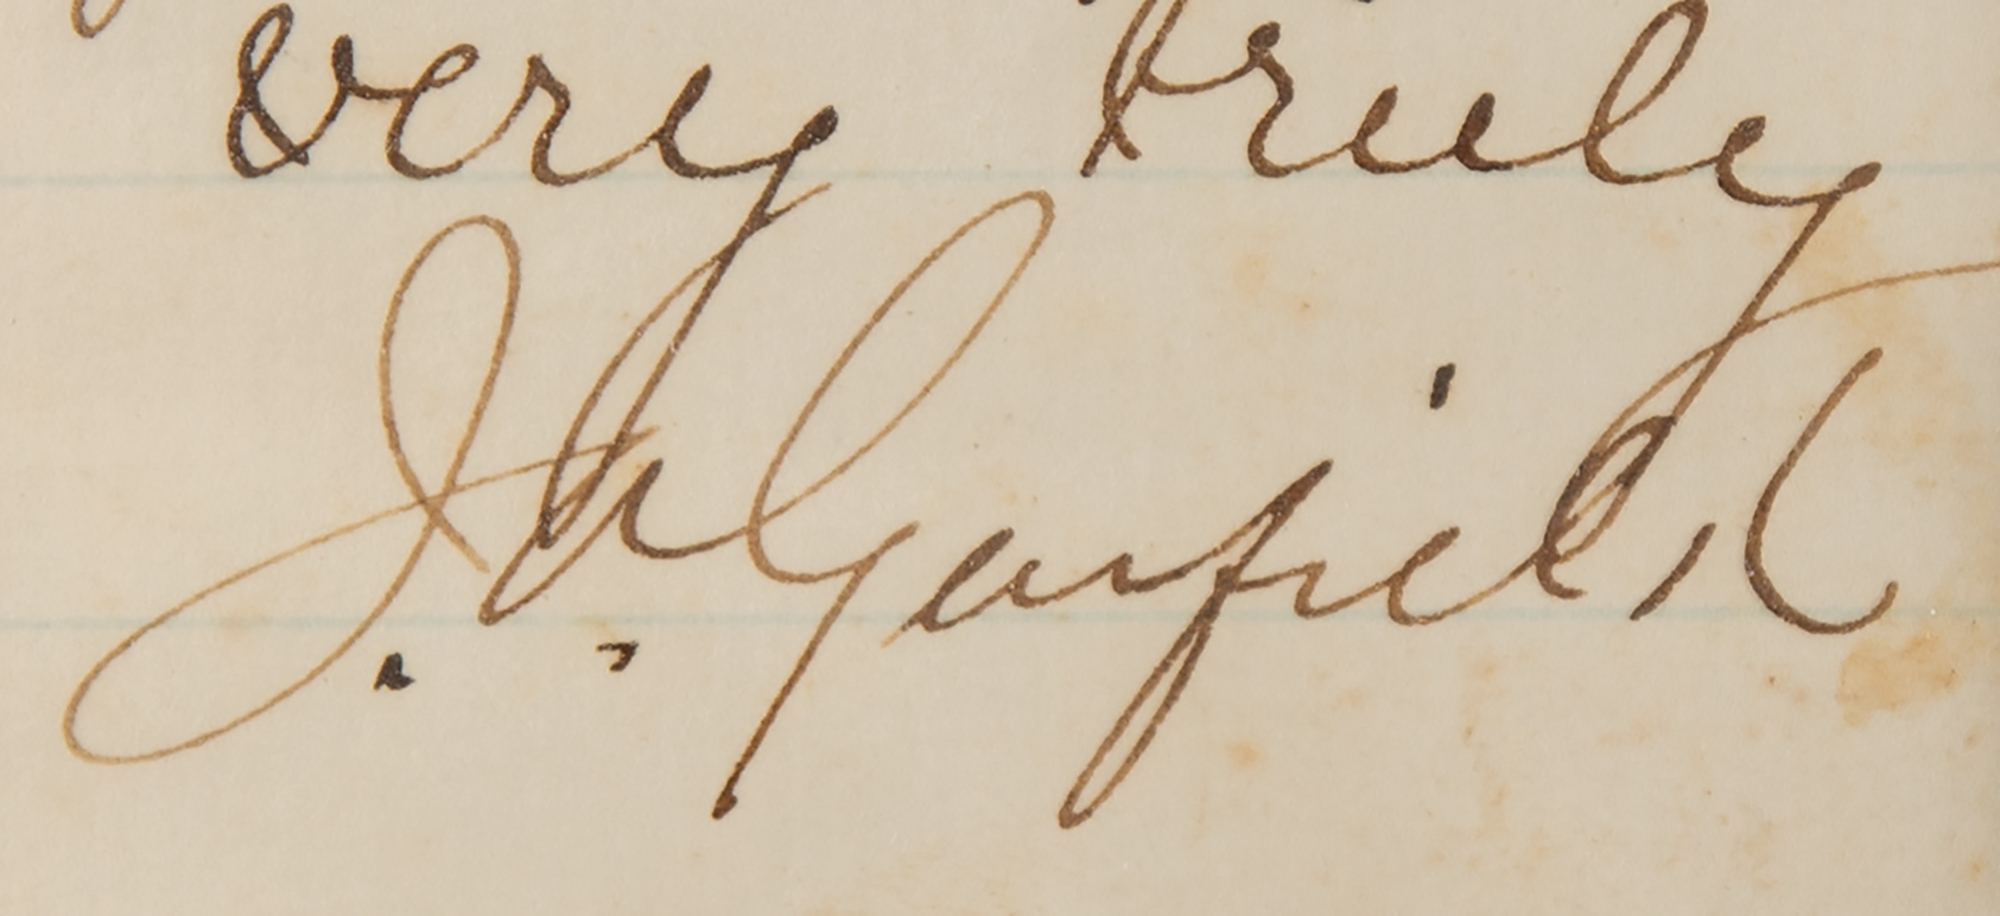 very truly
J. A. Garfield